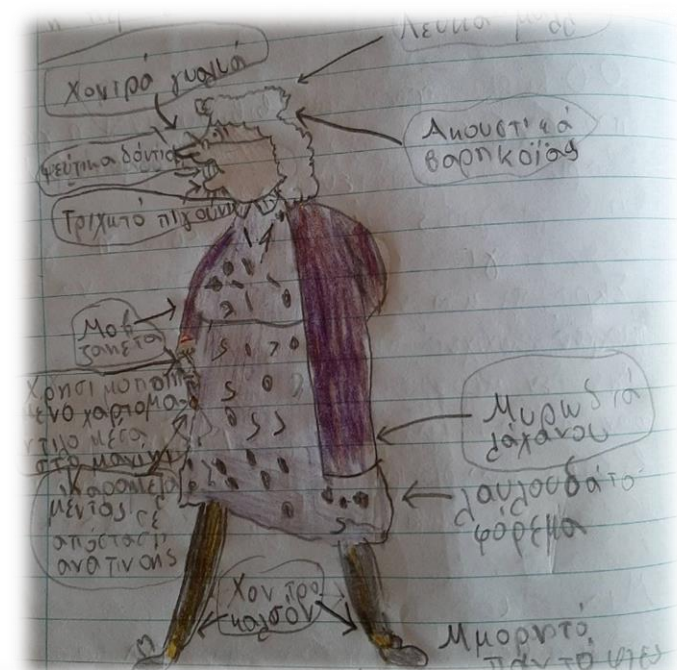 Λευκά
Χοντρά γυαλιά
Ακουστικά
βαρηκοΐας
ψεύτικα δόντια
Τριχωτό πιγούνι
Μοβ
ζακέτα
Χρησιμοποιη
μένο χαρτομά-
ντιλο μέσα
στο μανίκι
Καραμέλα
μέντας σε
απόσταση
αναπνοής
Μυρωδιά
λάχανου
λουλουδάτο
φόρεμα
Χοντρο
καλσόν